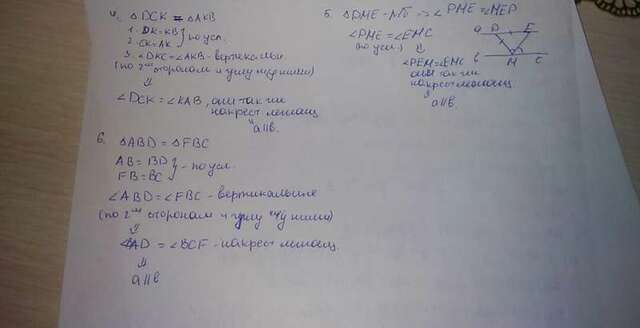 4. △DCK = △AKB
1. DK=KB } по усл.
2. CK=AK
3. ∠DKC=∠AKB-вертикальн
(по 2ум сторонам и углу м/у ними)
⇓
∠DCK=∠KAB, они так же
накрест лежащ
⇓
a∥b.
5. △DME-р/б ⇒ ∠DME=∠MED
∠DME=∠EMC
(по усл.) ⇓
∠DEM=∠EMC
они так же
накрест лежащ.
⇓
a∥b
a D E
b M C
6.
△ABD=△FBC
AB=BD } - по усл.
FB=BC
∠ABD=∠FBC-вертикальные
(по 2ум сторонам и углу м/у ними)
⇓
∠AD=∠BCF-накрест лежащ.
⇓
a∥b